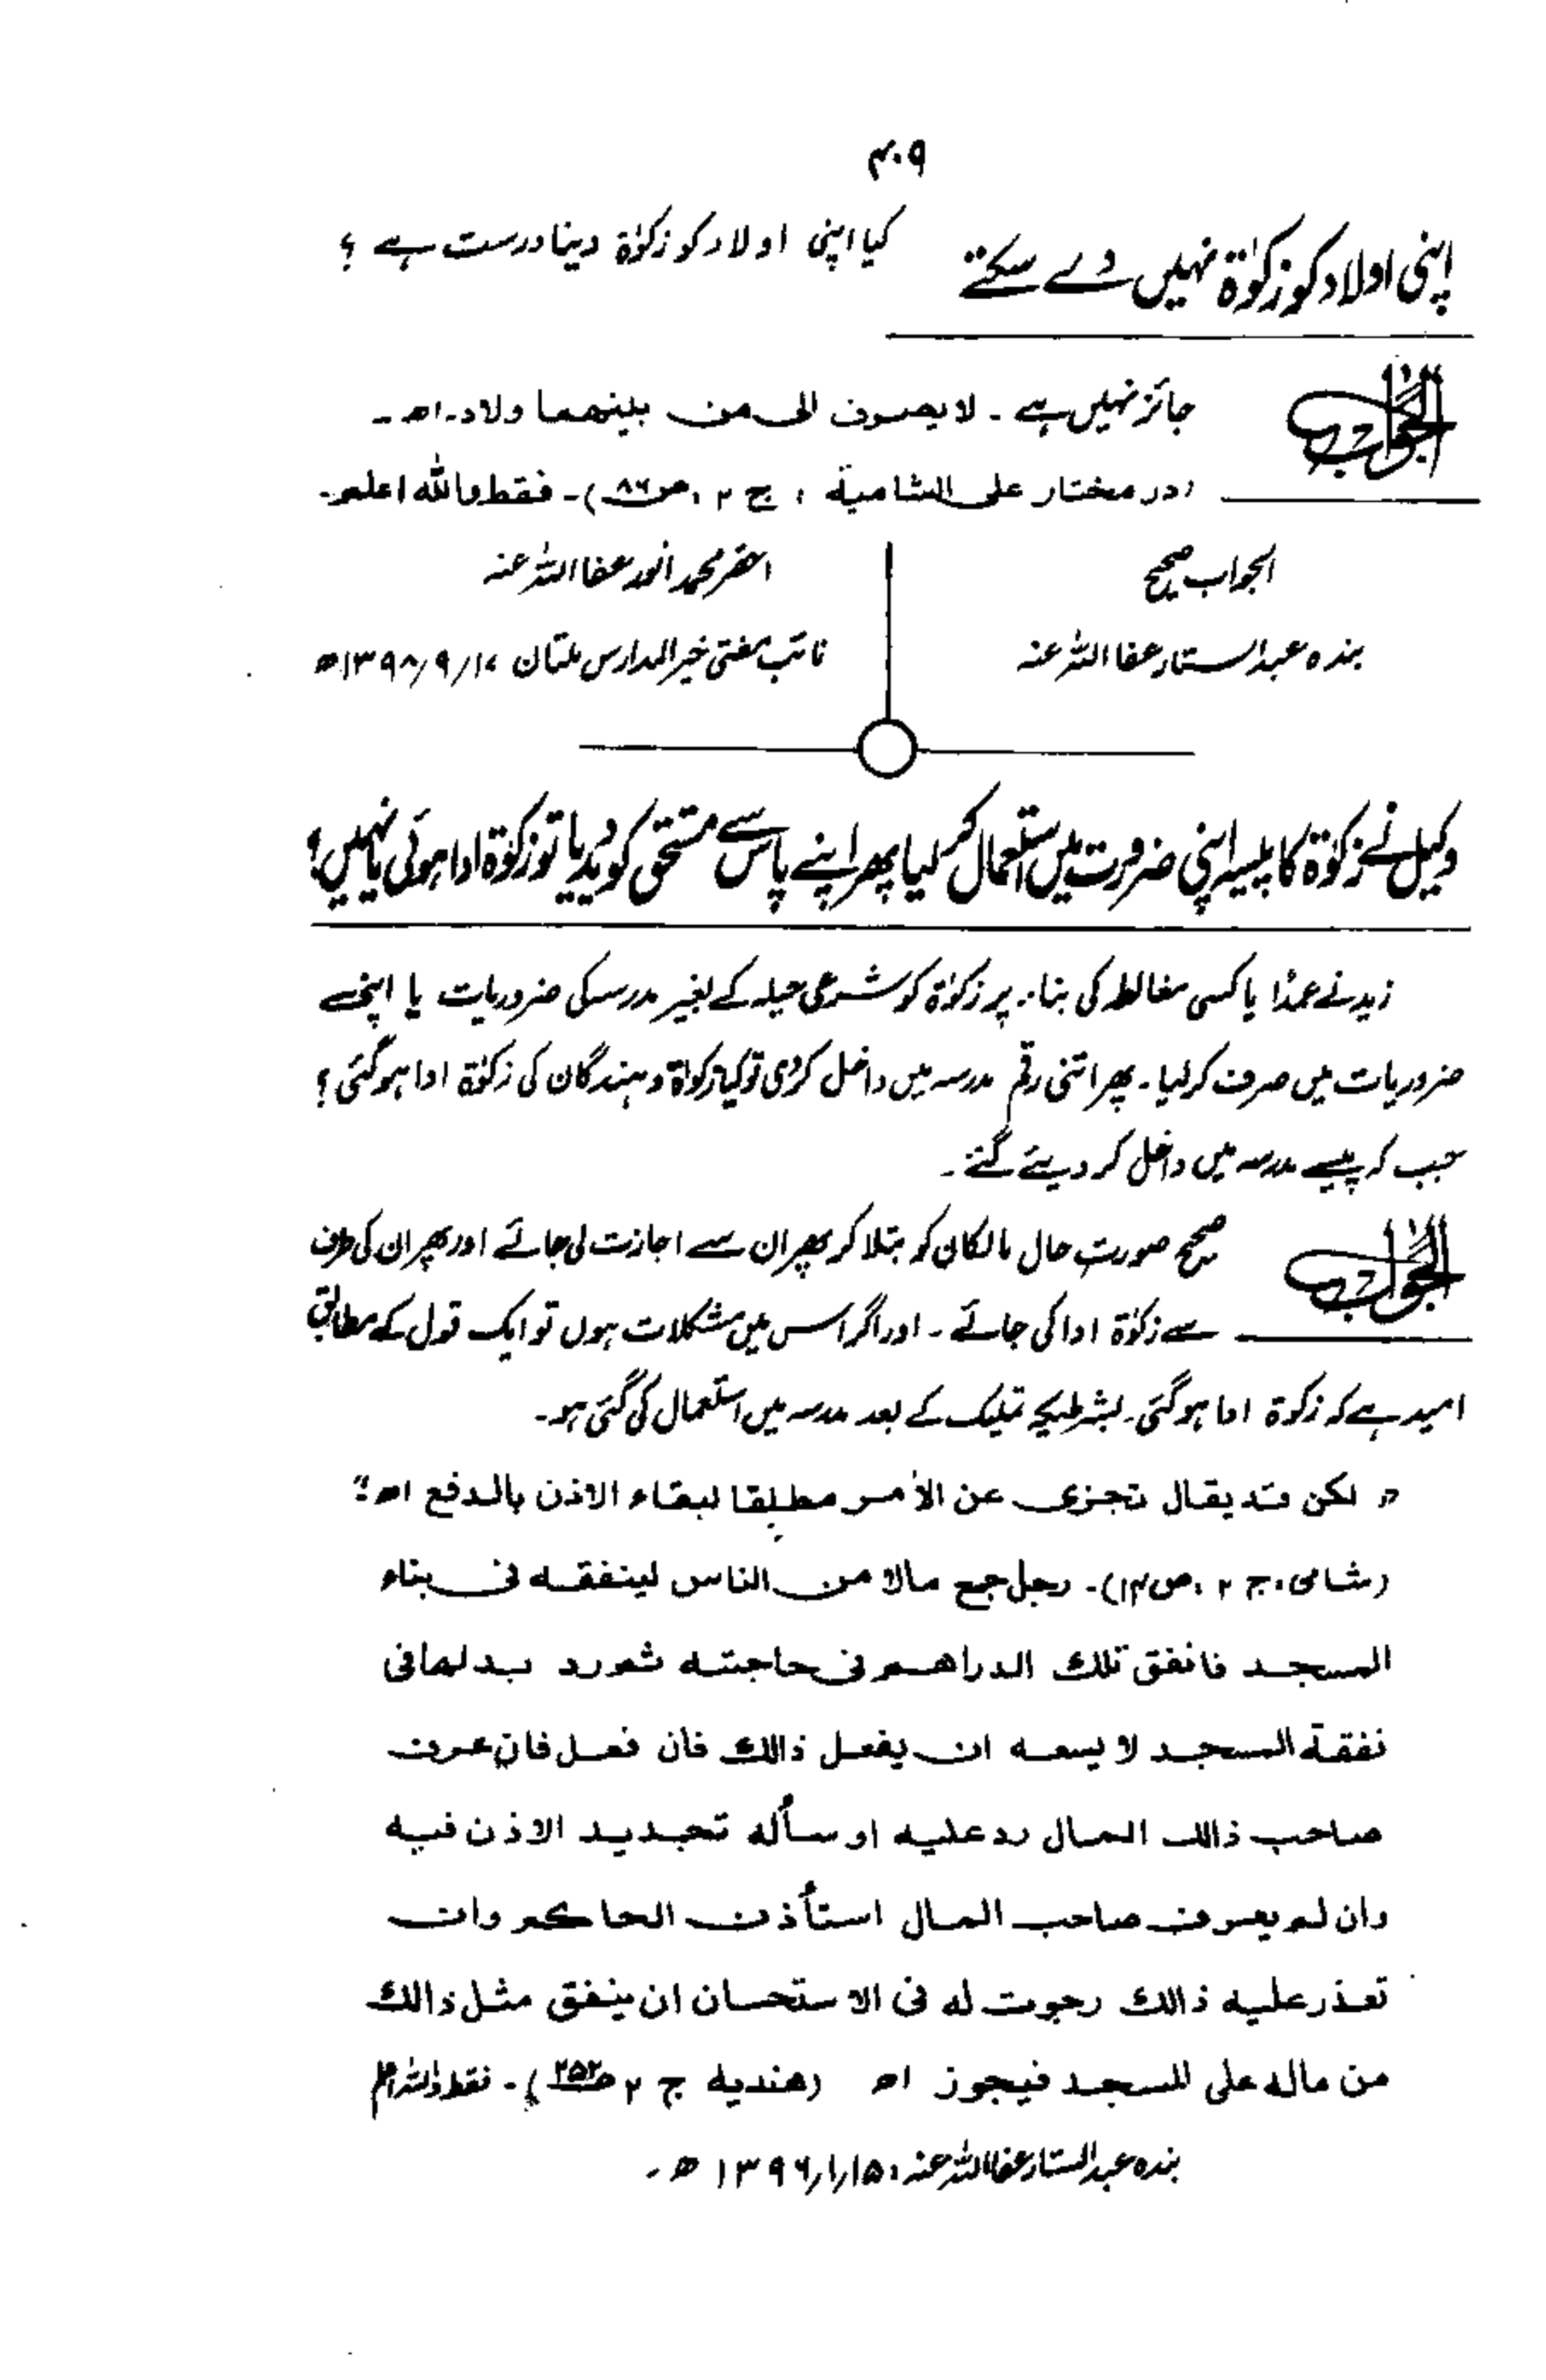 ۴۰۹
اپنی اولاد کو زکوٰۃ نہیں دے سکتے
کیا اپنی اولاد کو زکوٰۃ دینا درست ہے ؟
الجواب
جائز نہیں ہے ۔ لا یصرف الی من بینهما ولاد ۔ اھ ۔
(در مختار علی الشامیة ، ج ۲ ، ص ۸۶) ۔ فقط والله اعلم ۔
الجواب صحیح
بندہ عبدالستار عفا اللہ عنہ
احقر محمد انور عفا اللہ عنہ
نائب مفتی خیر المدارس ملتان ۱۷/۹/۱۳۹۸ھ
وکیل نے زکوٰۃ کا پیسہ اپنی ضرورت میں استعمال کر لیا پھر اپنے پاس سے مستحق کو دیدیا تو زکوٰۃ ادا ہوئی یا نہیں ؟
زید نے عمدًا یا کسی مغالطہ کی بناء پر زکوٰۃ کو شرعی حیلہ کے بغیر مدرسہ کی ضروریات یا اپنے
ضروریات میں صرف کر لیا ۔ پھر اتنی رقم مدرسہ میں داخل کر دی تو کیا زکواۃ دہندگان کی زکوٰۃ ادا ہو گئی ؟
جب کہ پیسے مدرسہ میں داخل کر دیئے گئے ۔
الجواب
صحیح صورت حال مالکان کو بتلا کر پھر ان سے اجازت لی جائے اور پھر ان کی طرف
سے زکوٰۃ ادا کی جائے ۔ اور اگر اس میں مشکلات ہوں تو ایک قول کے مطابق
امید ہے کہ زکوۃ ادا ہو گئی ۔ بشرطیکہ تملیک کے بعد مدرسہ میں استعمال کی گئی ہو ۔
” لکن قد یقال تجزی عن الأمر مطلقا لبقاء الاذن بالدفع اھ “
(شامی ، ج ۲ ، ص ۱۴) ۔ رجل جمع مالا من الناس لینفقه فی بناء
المسجد فانفق تلك الدراهم فی حاجته ثم رد بدلها فی
نفقة المسجد لا یسعه ان یفعل ذالك فان فعل فان عرف
صاحب ذالك المال رد علیه او سأله تجدید الاذن فیه
وان لم یعرف صاحب المال استأذن الحاکم وان
تعذر علیه ذالك رجوت له فی الاستحسان ان ینفق مثل ذالك
من ماله علی المسجد فیجوز اھ (هندیه ج ۲ ص ۲۵۲) ۔ فقط واللہ اعلم
بندہ عبدالستار عفا اللہ عنہ ، ۱۵/۱/۱۳۹۶ھ ۔